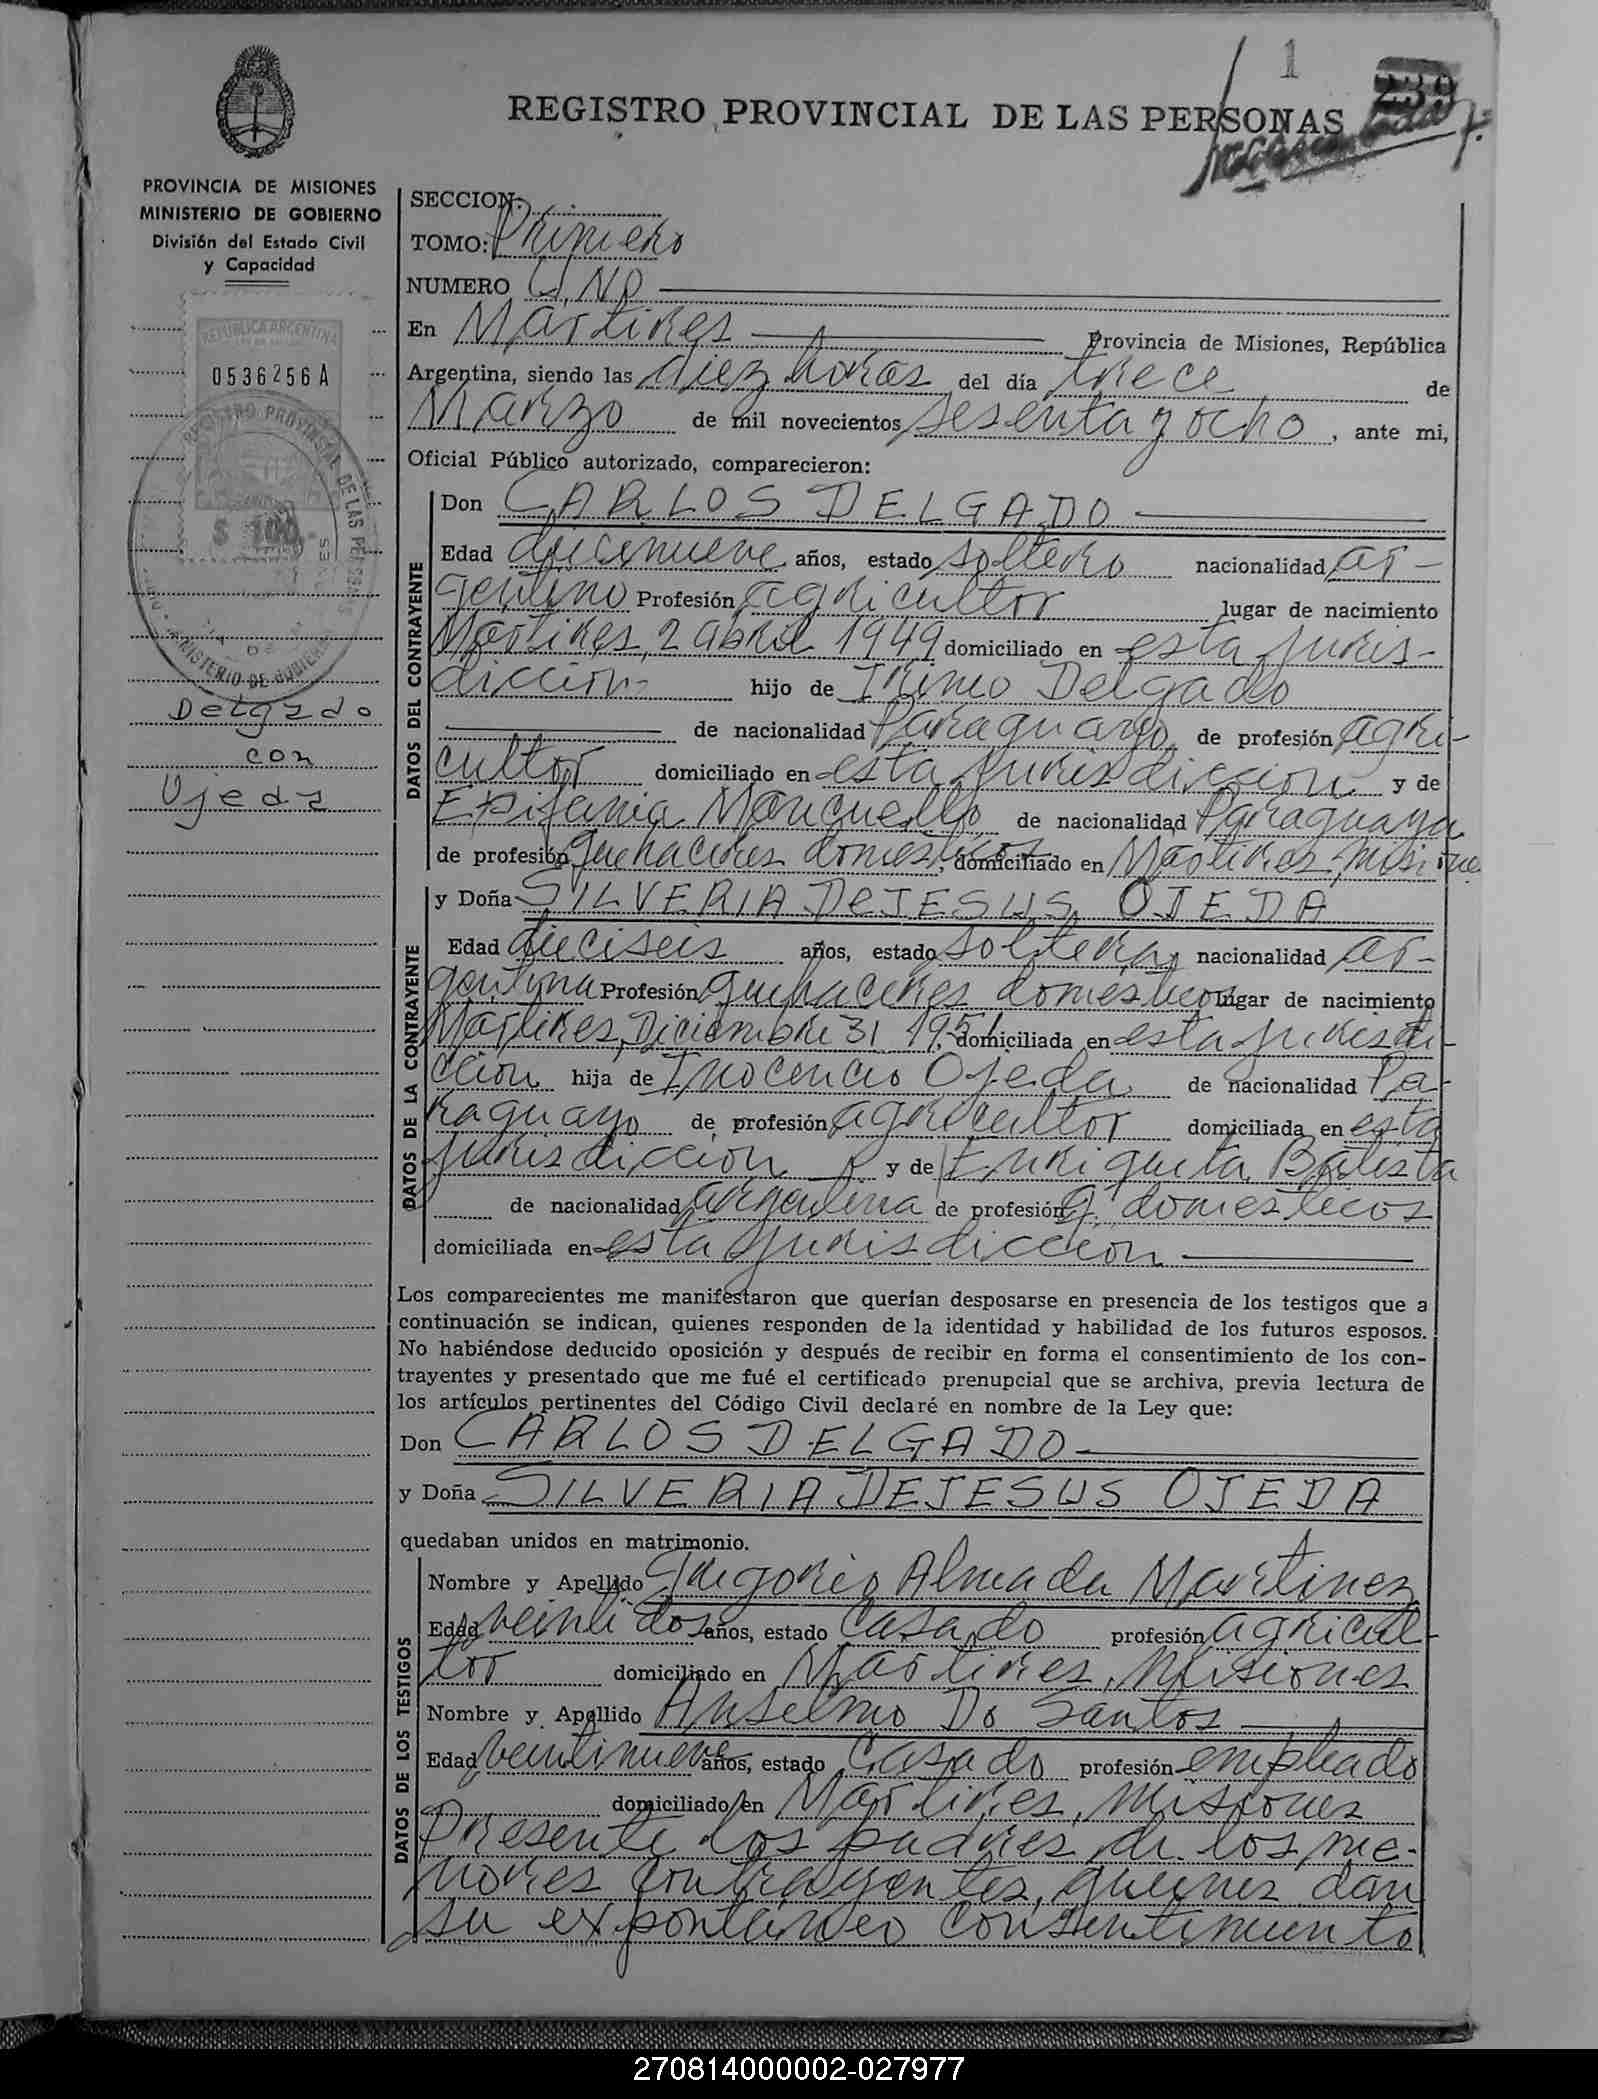 1
239
REGISTRO PROVINCIAL DE LAS PERSONAS
PROVINCIA DE MISIONES
MINISTERIO DE GOBIERNO
División del Estado Civil
y Capacidad
REPUBLICA ARGENTINA
0536256A
REGISTRO PROVINCIAL DE LAS PERSONAS
$ 100.-
MINISTERIO DE GOBIERNO
Delgado
con
Ojeda
SECCION:
TOMO: Primero
NUMERO UNO
En Martires Provincia de Misiones, República
Argentina, siendo las diez horas del día trece de
Marzo de mil novecientos sesenta y ocho, ante mi,
Oficial Público autorizado, comparecieron:
DATOS DEL CONTRAYENTE
Don CARLOS DELGADO
Edad diecinueve años, estado soltero nacionalidad ar-
gentino Profesión agricultor lugar de nacimiento
Martires, 2 abril 1949 domiciliado en esta juris-
diccion hijo de Irineo Delgado
de nacionalidad Paraguayo, de profesión agri-
cultor domiciliado en esta jurisdiccion y de
Epifania Mancuello de nacionalidad Paraguaya
de profesión quehaceres domesticos, domiciliado en Martires, Misiones
DATOS DE LA CONTRAYENTE
y Doña SILVERIA DeJESUS OJEDA
Edad dieciseis años, estado soltera, nacionalidad ar-
gentina Profesión quehaceres domesticos lugar de nacimiento
Martires, Diciembre 31 1951 domiciliada en esta jurisdi-
ccion hija de Inocencio Ojeda de nacionalidad Pa-
raguayo de profesión agricultor domiciliada en esta
jurisdiccion y de Enriqueta Batista
de nacionalidad argentina de profesión q. domesticos
domiciliada en esta jurisdiccion
Los comparecientes me manifestaron que querían desposarse en presencia de los testigos que a
continuación se indican, quienes responden de la identidad y habilidad de los futuros esposos.
No habiéndose deducido oposición y después de recibir en forma el consentimiento de los con-
trayentes y presentado que me fué el certificado prenupcial que se archiva, previa lectura de
los artículos pertinentes del Código Civil declaré en nombre de la Ley que:
Don CARLOS DELGADO
y Doña SILVERIA DEJESUS OJEDA
quedaban unidos en matrimonio.
DATOS DE LOS TESTIGOS
Nombre y Apellido Gregorio Almada Martinez
Edad veinti dos años, estado casado profesión agricul-
tor domiciliado en Martires, Misiones
Nombre y Apellido Anselmo Do Santos
Edad veintinueve años, estado casado profesión empleado
domiciliado en Martires, Misiones
Presente los padres de los me-
nores contrayentes, quienes dan
su expontaneo consentimiento
270814000002-027977